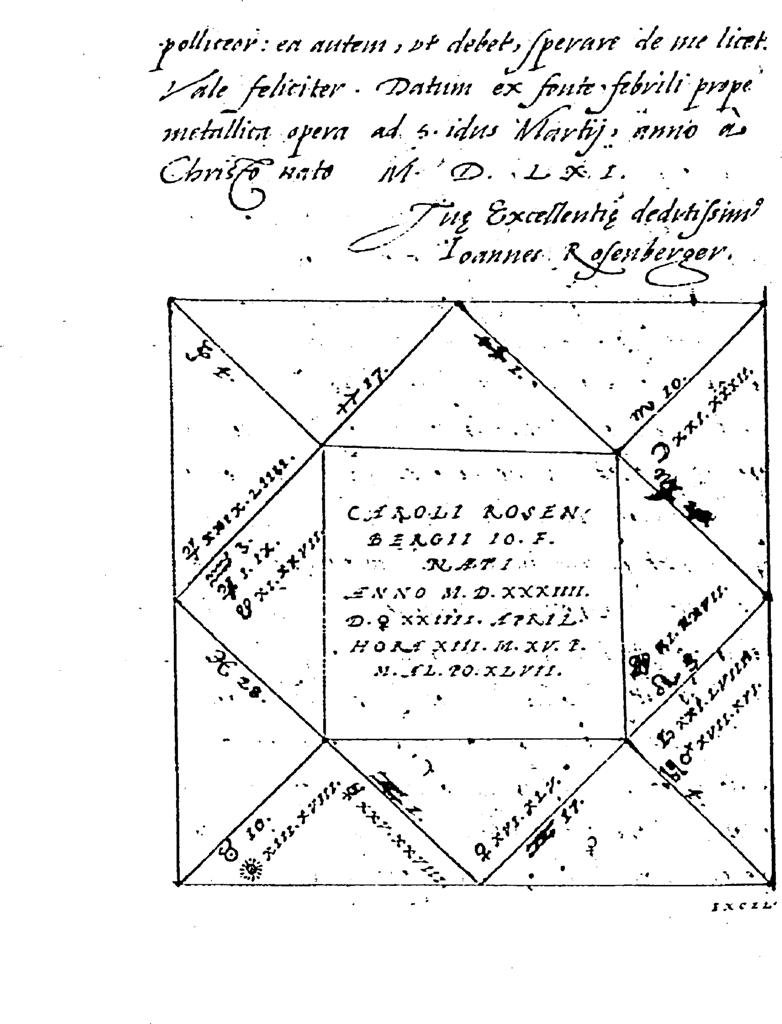 polliceor: ea autem, ut debet, sperare de me licet.
Vale feliciter. Datum ex fonte febrili prope
metallica opera ad 5. idus Martij, anno à
Christo nato M. D. LXI.
Tuę Excellentię deditissimꝰ
Ioannes Rosenberger.
♑ 4.
♐ 17.
♐ 1.
♏ 10.
☽ XXI. XXXII.
♃ XXIX. LIIII.
♒ 3.
I. IX.
XI. XXVII.
CAROLI ROSEN
BERGII IO. F.
NATI
ANNO M. D. XXXIIII.
D. ♀ XXIIII. APRIL
HORA XIII. M. XV. P.
M. AL. PO. XLVII.
XI. XXVII.
♌ 3.
♓ 28.
♄ XXI. LVII
♂ XVII. XVI.
♉ 10.
☉ XIII. XVIII.
XXV. XXVIII.
1.
♀ XVI. XLV.
17.
♀
EXCEL